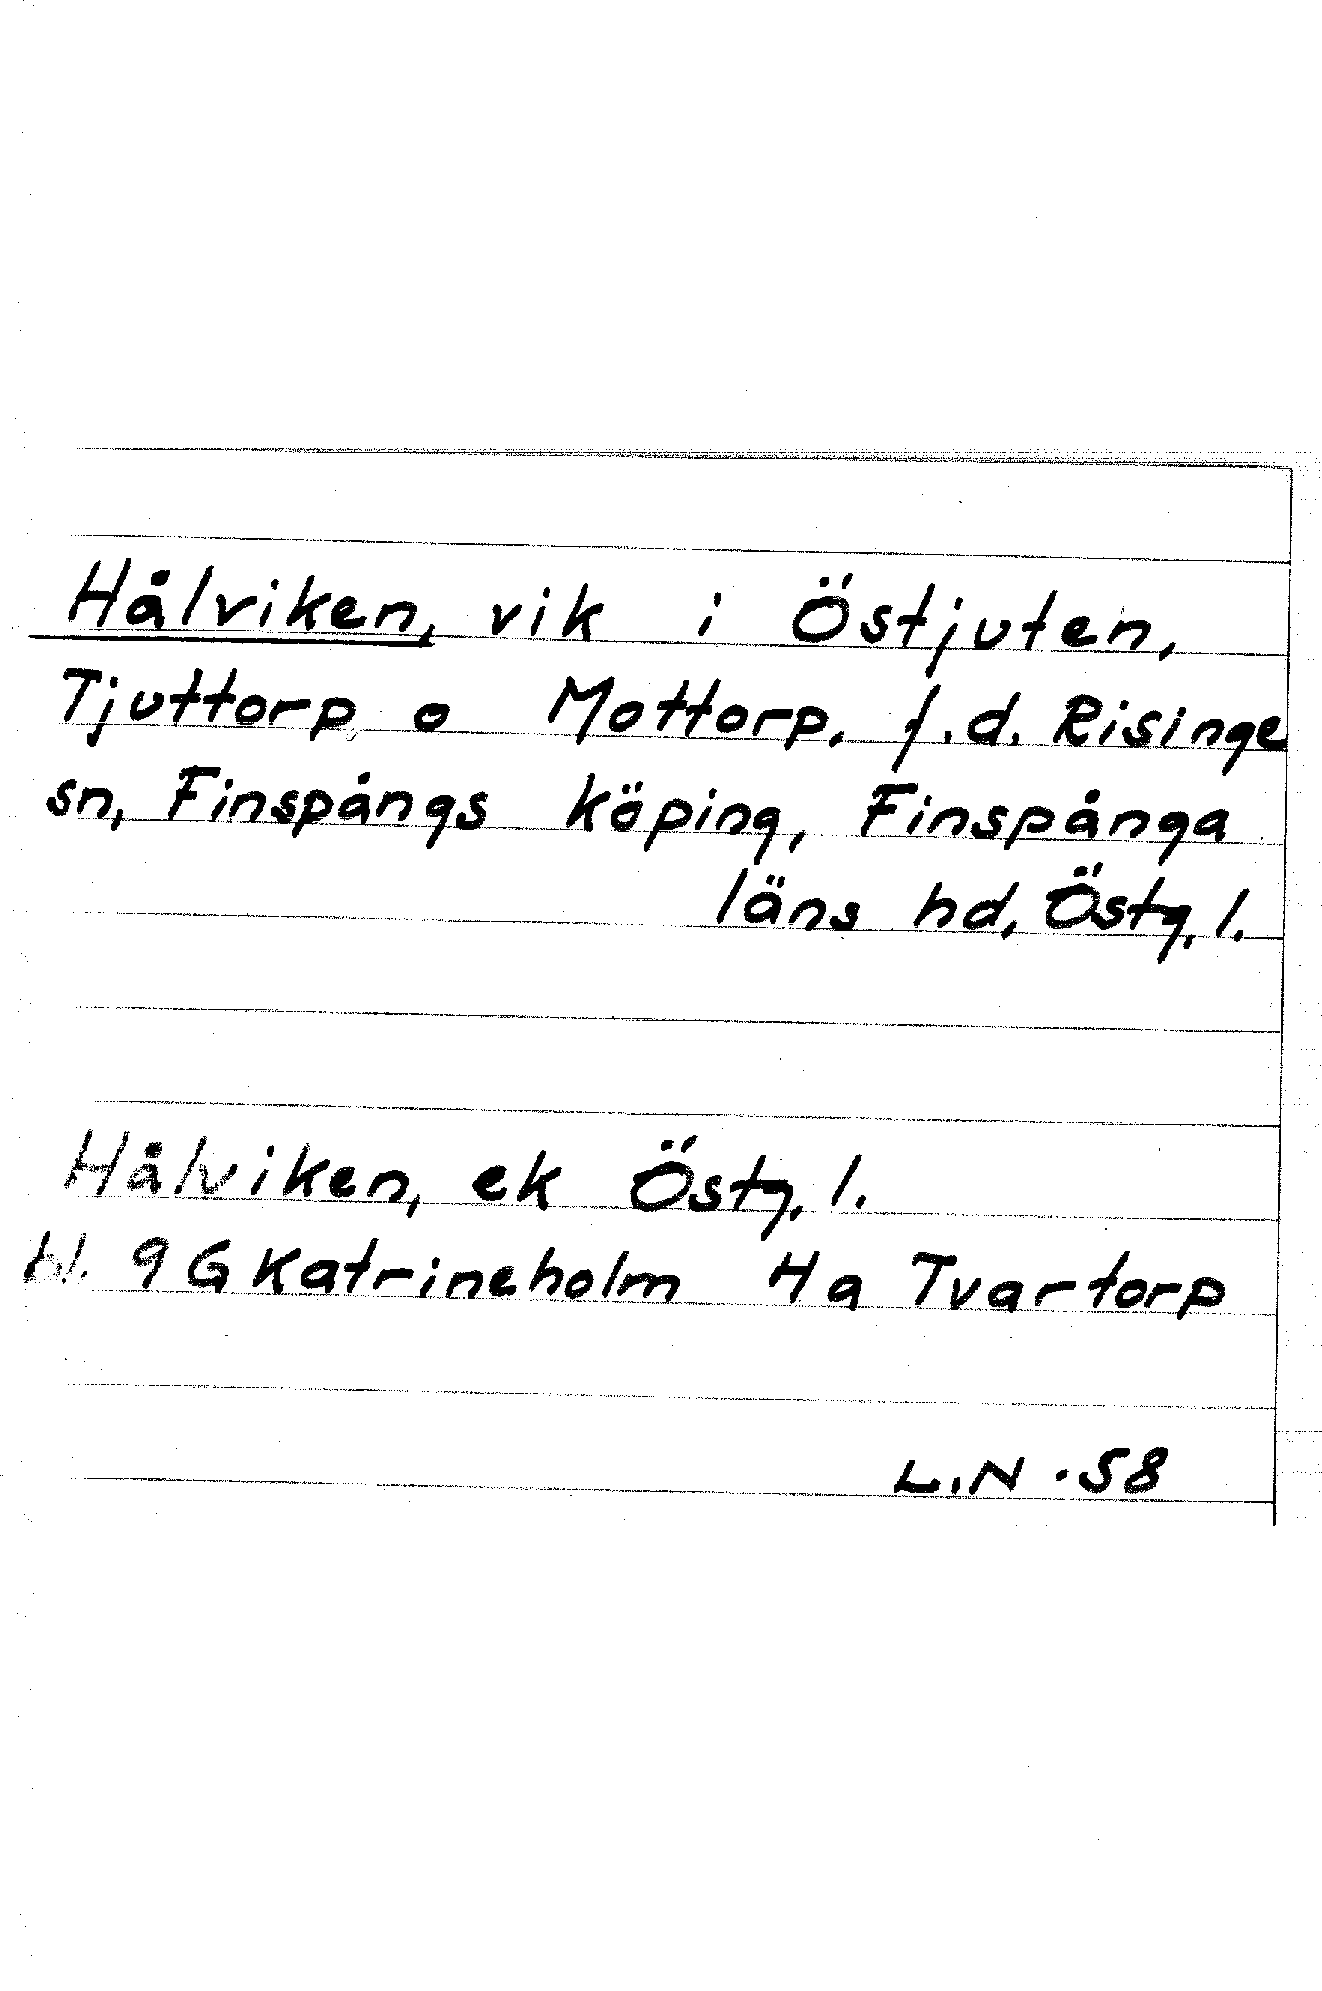 Hålviken, vik i Östjuten,
Tjuttorp o Mottorp, f.d. Risinge
sn, Finspångs köping, Finspånga
läns hd, Östg. l.
Hålviken, ek Östg. l.
bl. 9 G Katrineholm Ha Tvartorp
L.N. 58